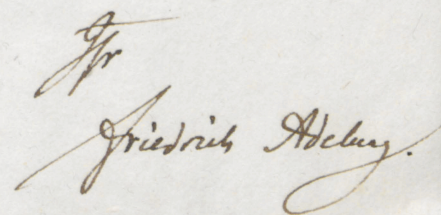 Ihr
Friedrich Adelung.